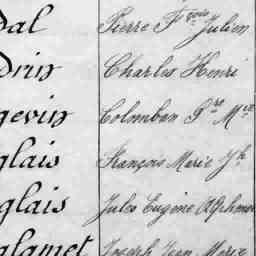 dal Pierre Fçois Julien
drin Charles Henri
gevin Colomban Pre Mie
glais François Marie Jh
glais Jules Eugène Alphonse
glamet Joseph Jean Marie